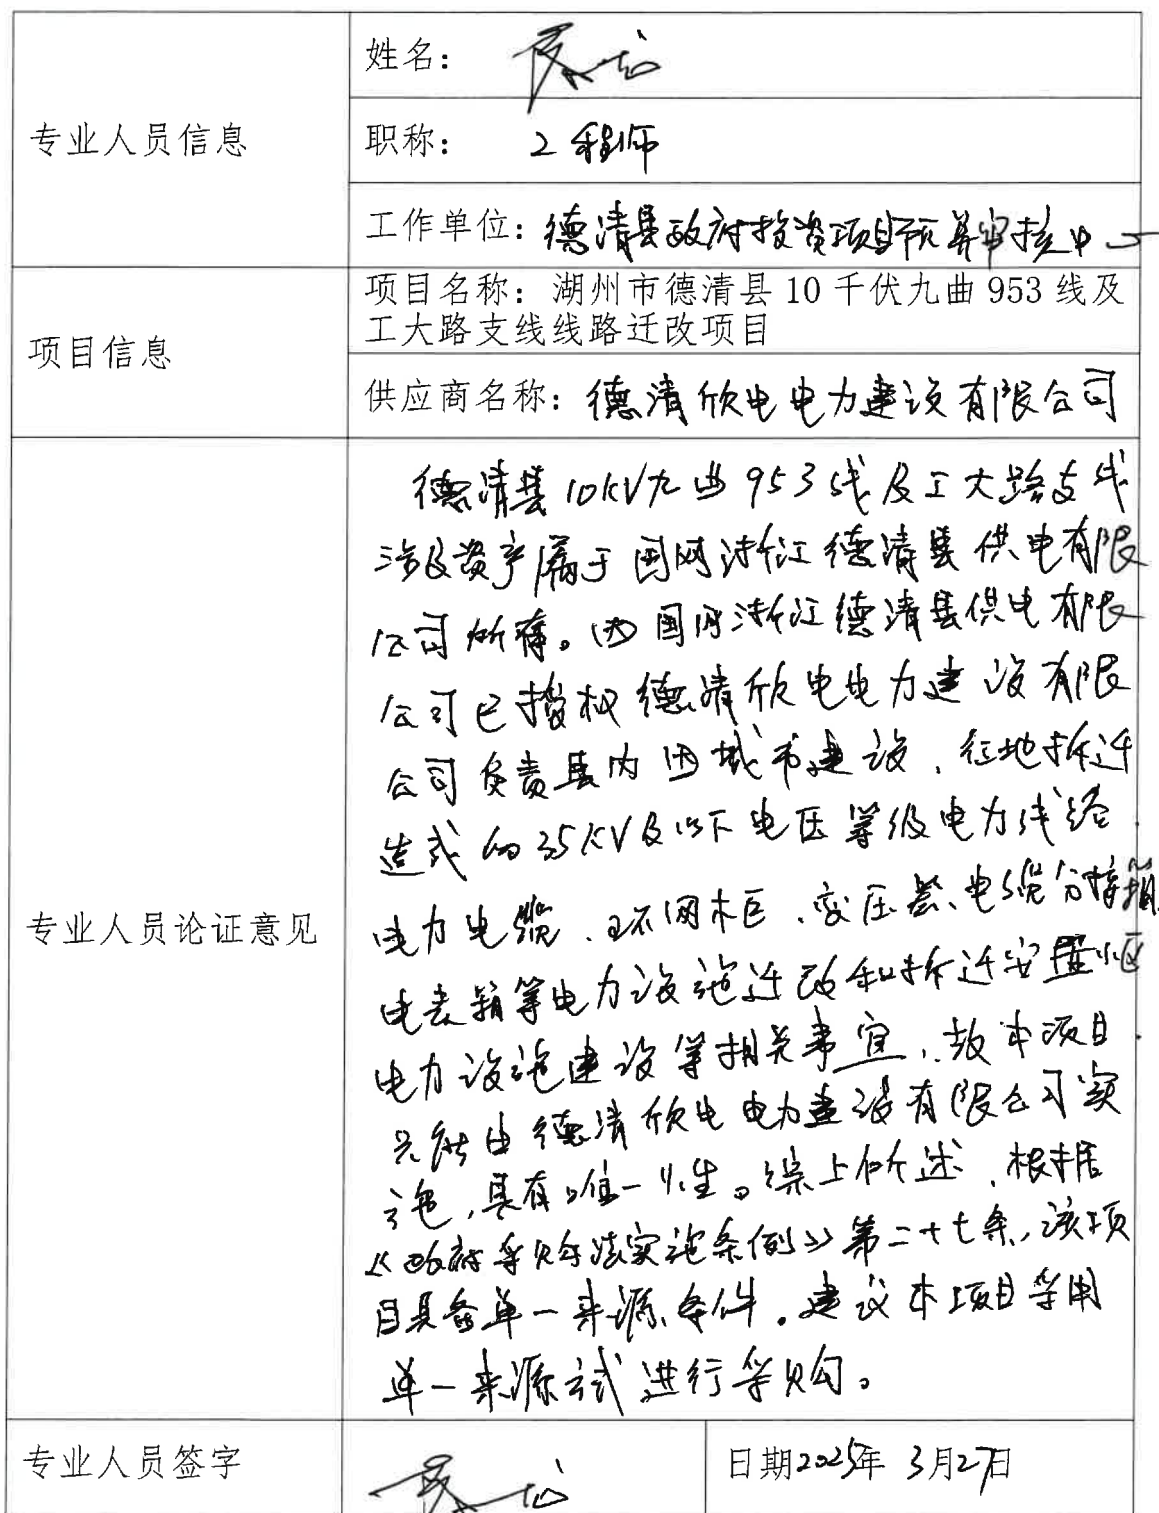 姓名：
专业人员信息
职称： 工程师
工作单位：德清县政府投资项目预算审核中心
项目信息
项目名称：湖州市德清县 10 千伏九曲 953 线及
工大路支线线路迁改项目
供应商名称：德清欣电电力建设有限公司
专业人员论证意见
德清县10kV九曲953线及工大路支线
涉及资产属于国网浙江德清县供电有限
公司所有。因国网浙江德清县供电有限
公司已授权德清欣电电力建设有限
公司负责县内因城市建设、征地拆迁
造成的35KV及以下电压等级电力线路、
电力电缆、环网柜、变压器、电缆分接箱、
电表箱等电力设施迁改和拆迁安置小区
电力设施建设等相关事宜，故本项目
只能由德清欣电电力建设有限公司实
施，具有唯一性。综上所述，根据
《政府采购法实施条例》第二十七条，该项
目具备单一来源条件。建议本项目采用
单一来源方式进行采购。
专业人员签字
日期2025年 3月27日